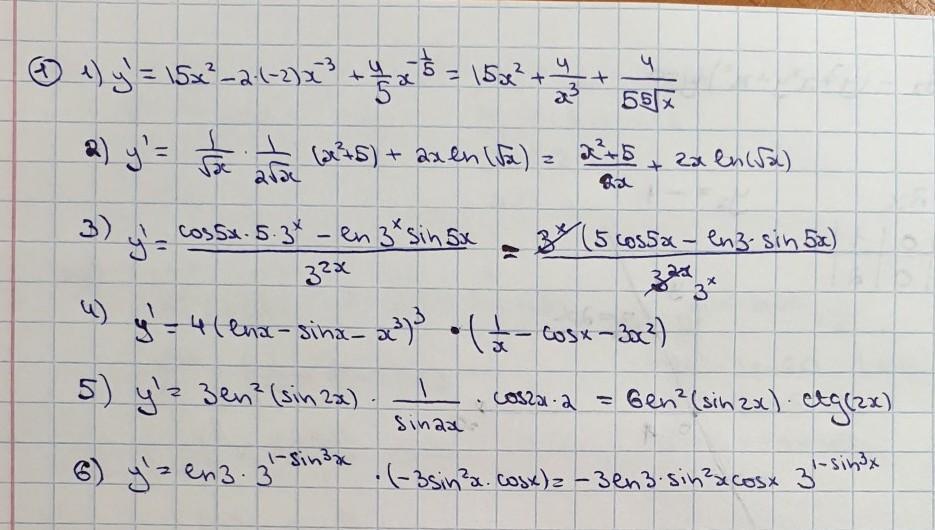 ① 1) y' = 15x² - 2·(-2)x⁻³ + 4/5 x^(-1/5) = 15x² + 4/x³ + 4/(5 ⁵√x)
2) y' = 1/√x · 1/(2√x) (x²+5) + 2x ln(√x) = (x²+5)/(2x) + 2x ln(√x)
3) y' = (cos5x·5·3ˣ - ln3ˣ sin5x)/3²ˣ = 3ˣ(5cos5x - ln3·sin5x)/(3²ˣ 3ˣ)
4) y' = 4(lnx - sinx - x³)³ · (1/x - cosx - 3x²)
5) y' = 3ln²(sin2x) · 1/sin2x · cos2x·2 = 6ln²(sin2x)·ctg(2x)
6) y' = ln3·3^(1-sin³x) ·(-3sin²x·cosx) = -3ln3·sin²xcosx 3^(1-sin³x)